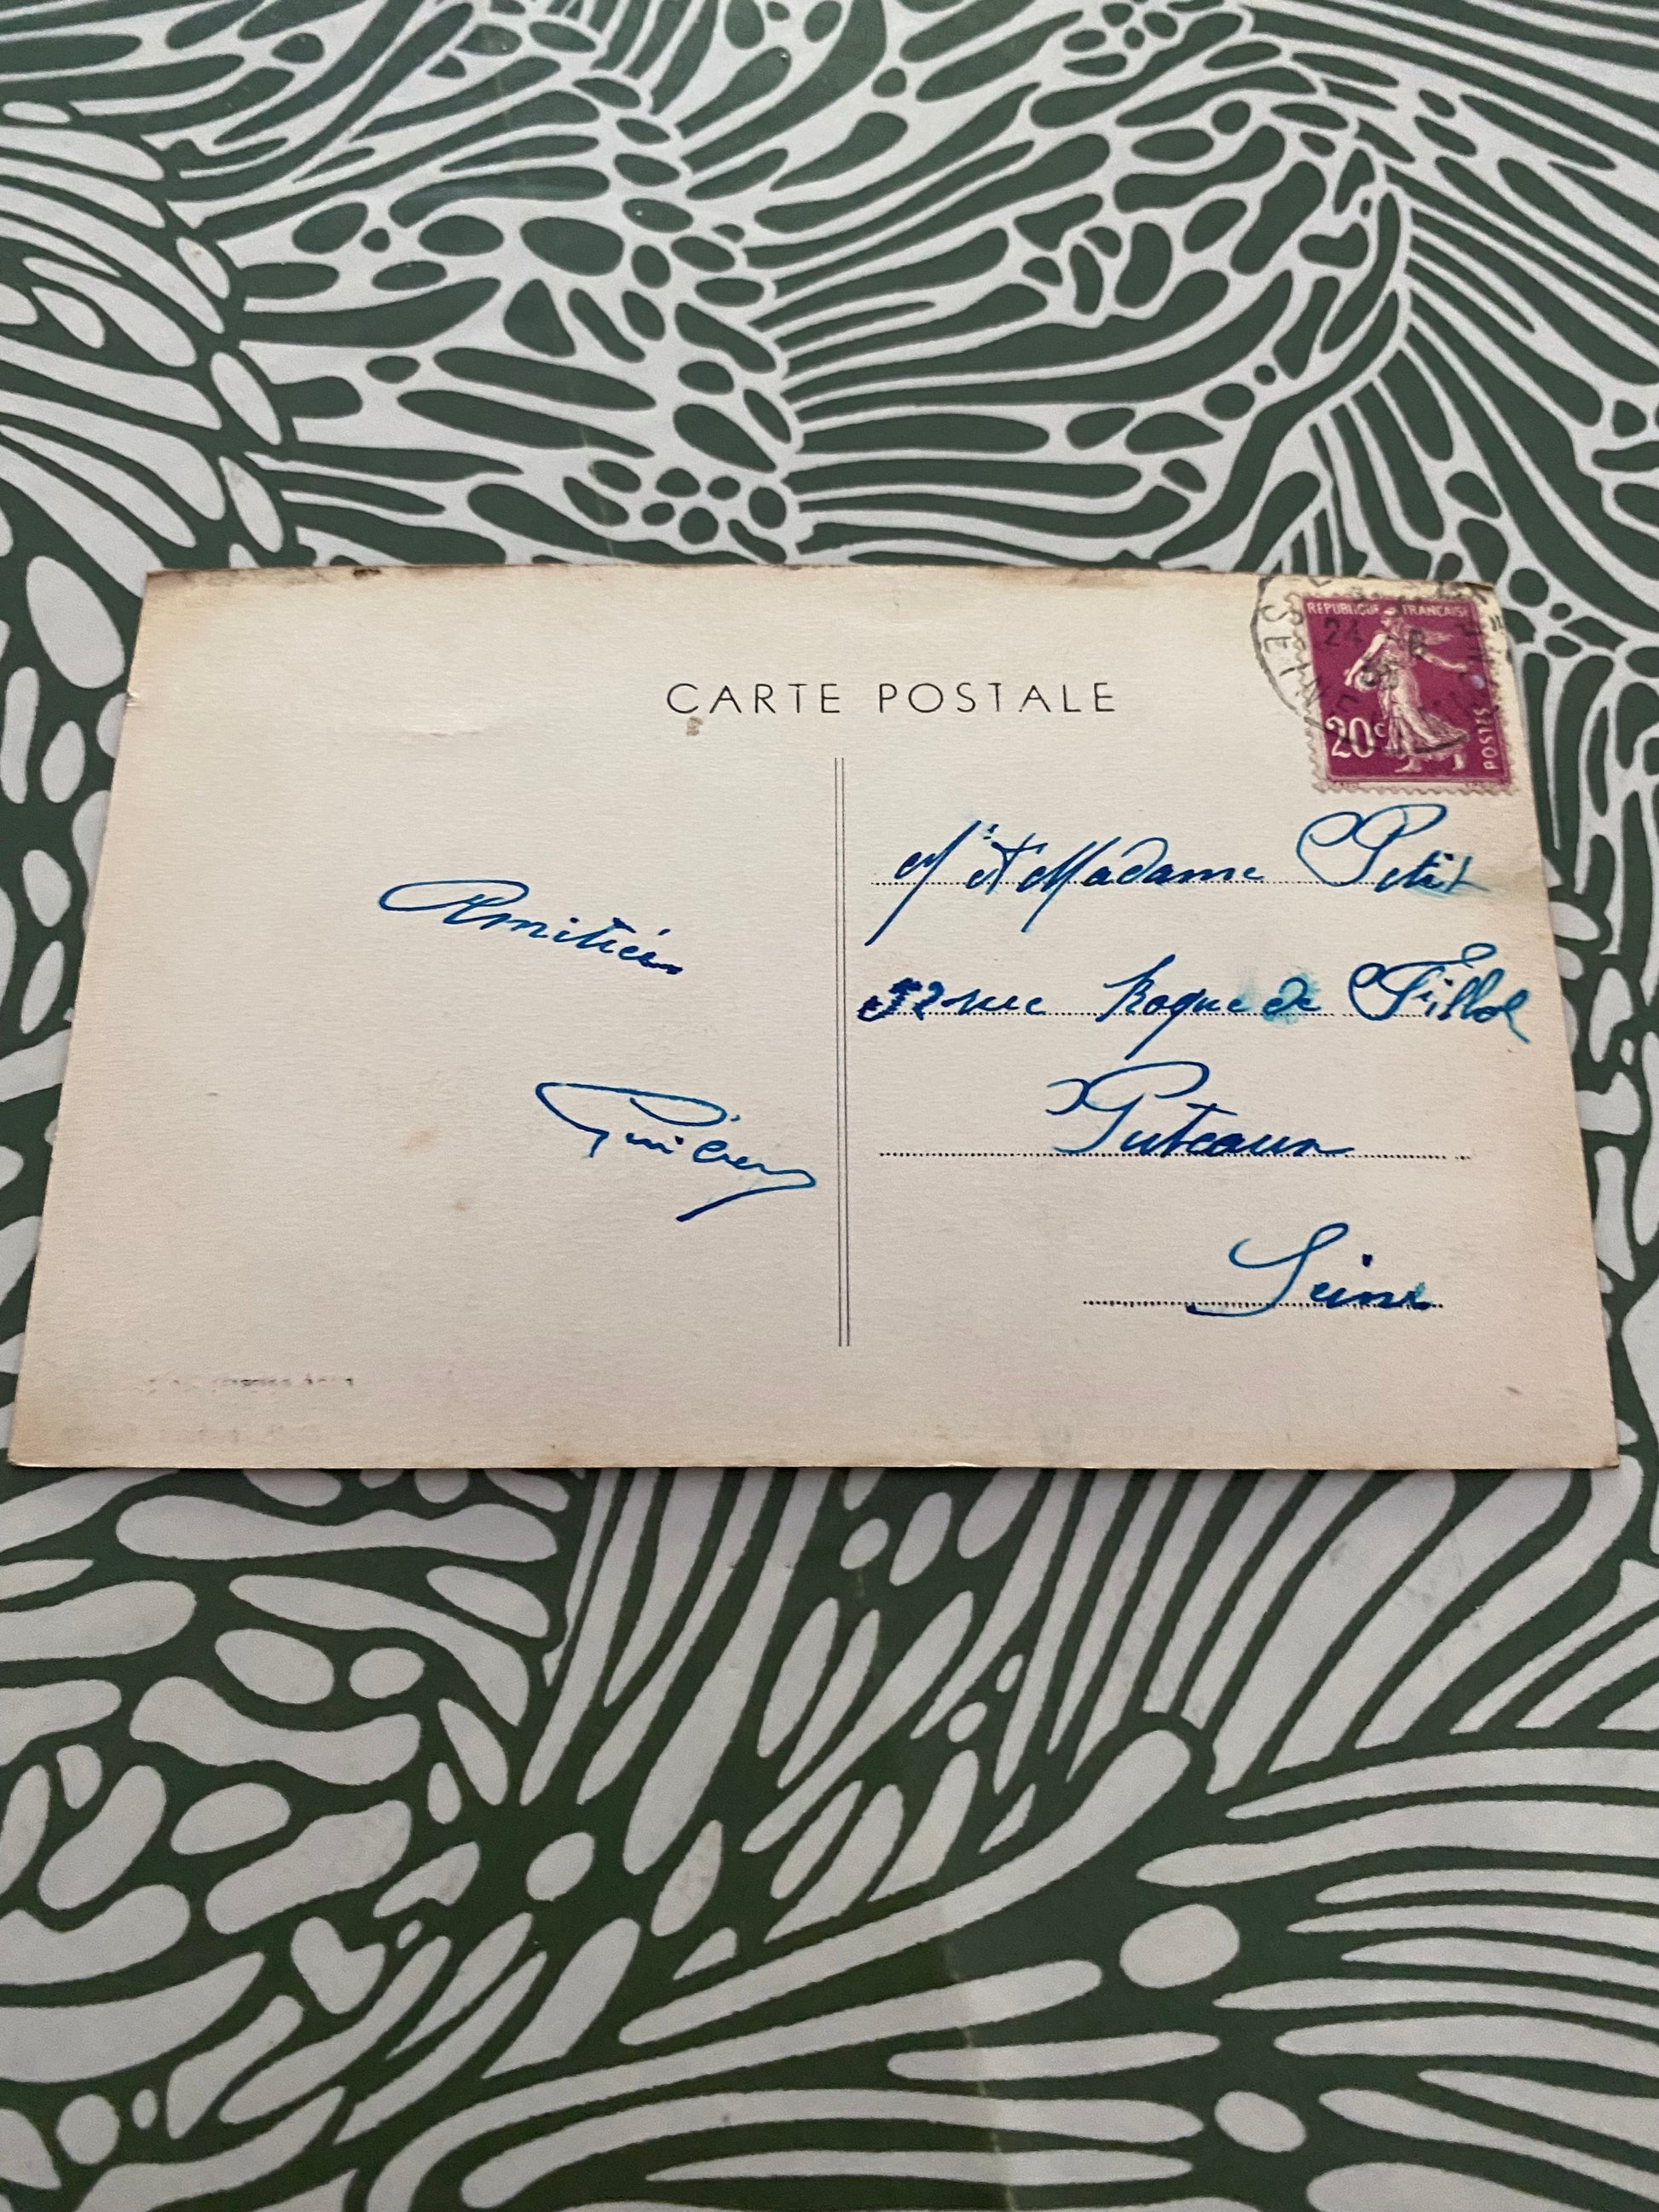 CARTE POSTALE
REPUBLIQUE FRANÇAISE
20c
POSTES
SEINE
24
Amitiés
Mr et Madame Petit
52 rue Roque de Fillol
Puteaux
Seine